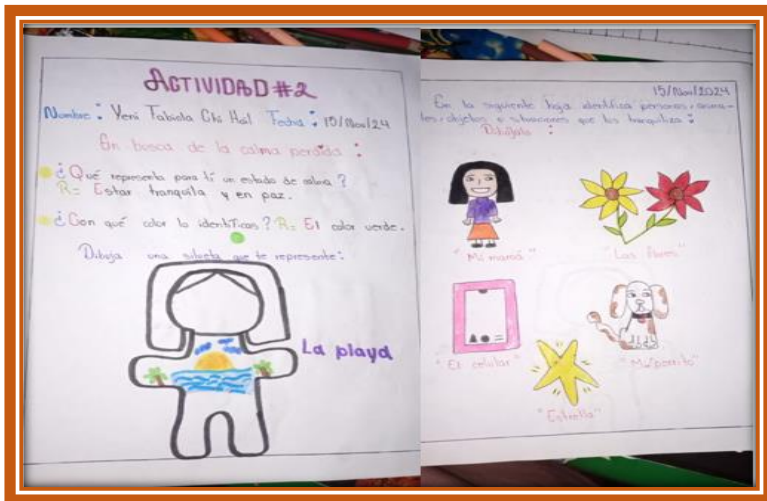 ACTIVIDAD #2
Nombre: Yeni Fabiola Chi Hál Fecha: 15/Nov/24
En busca de la calma perdida:
¿Qué representa para ti un estado de calma?
R= Estar tranquila y en paz.
¿Con qué color lo identificas? R= El color verde.
Dibuja una silueta que te represente:
La playa
15/Nov/2024
En la siguiente hoja identifica personas, anima-
les, objetos o situaciones que tus tranquiliza:
Dibújalo:
"Mi mamá"
"Las flores"
"El celular"
"Mi perrito"
"Estrella"